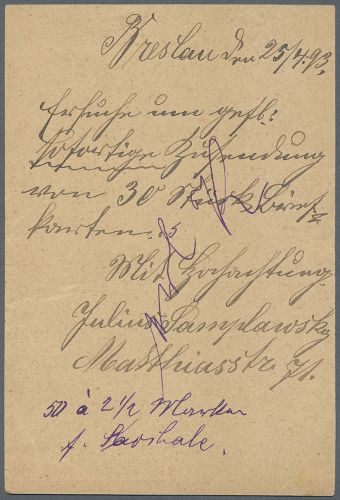 Breslau den 25/4.93.
Ersuche um gefl:
sofortige Zusendung
von 30 Stück Brief-
karten.
Mit Hochachtung
Julius Samplawsky
Matthiasstr. 71.
50 à 2 1/2 Marken
f.